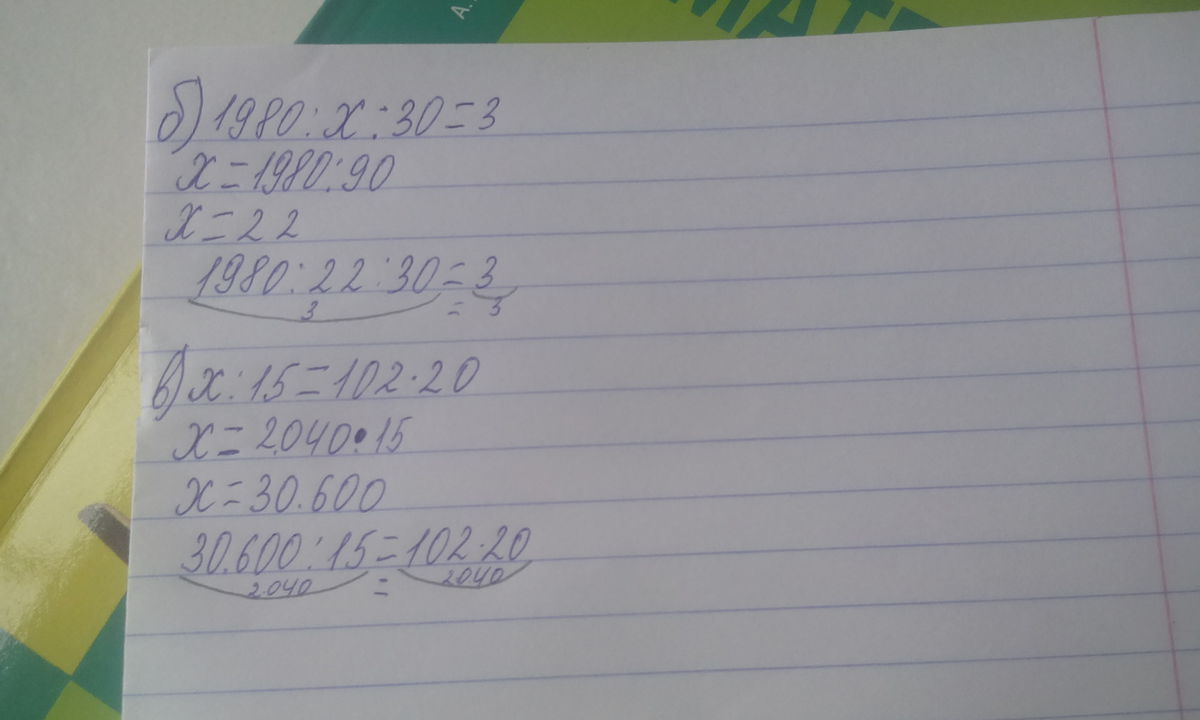 А.
МАТЕ
б) 1980 : x : 30 = 3
x = 1980 : 90
x = 22
1980 : 22 : 30 = 3
3 = 3
в) x : 15 = 102 · 20
x = 2.040 · 15
x = 30.600
30.600 : 15 = 102 · 20
2.040 = 2040